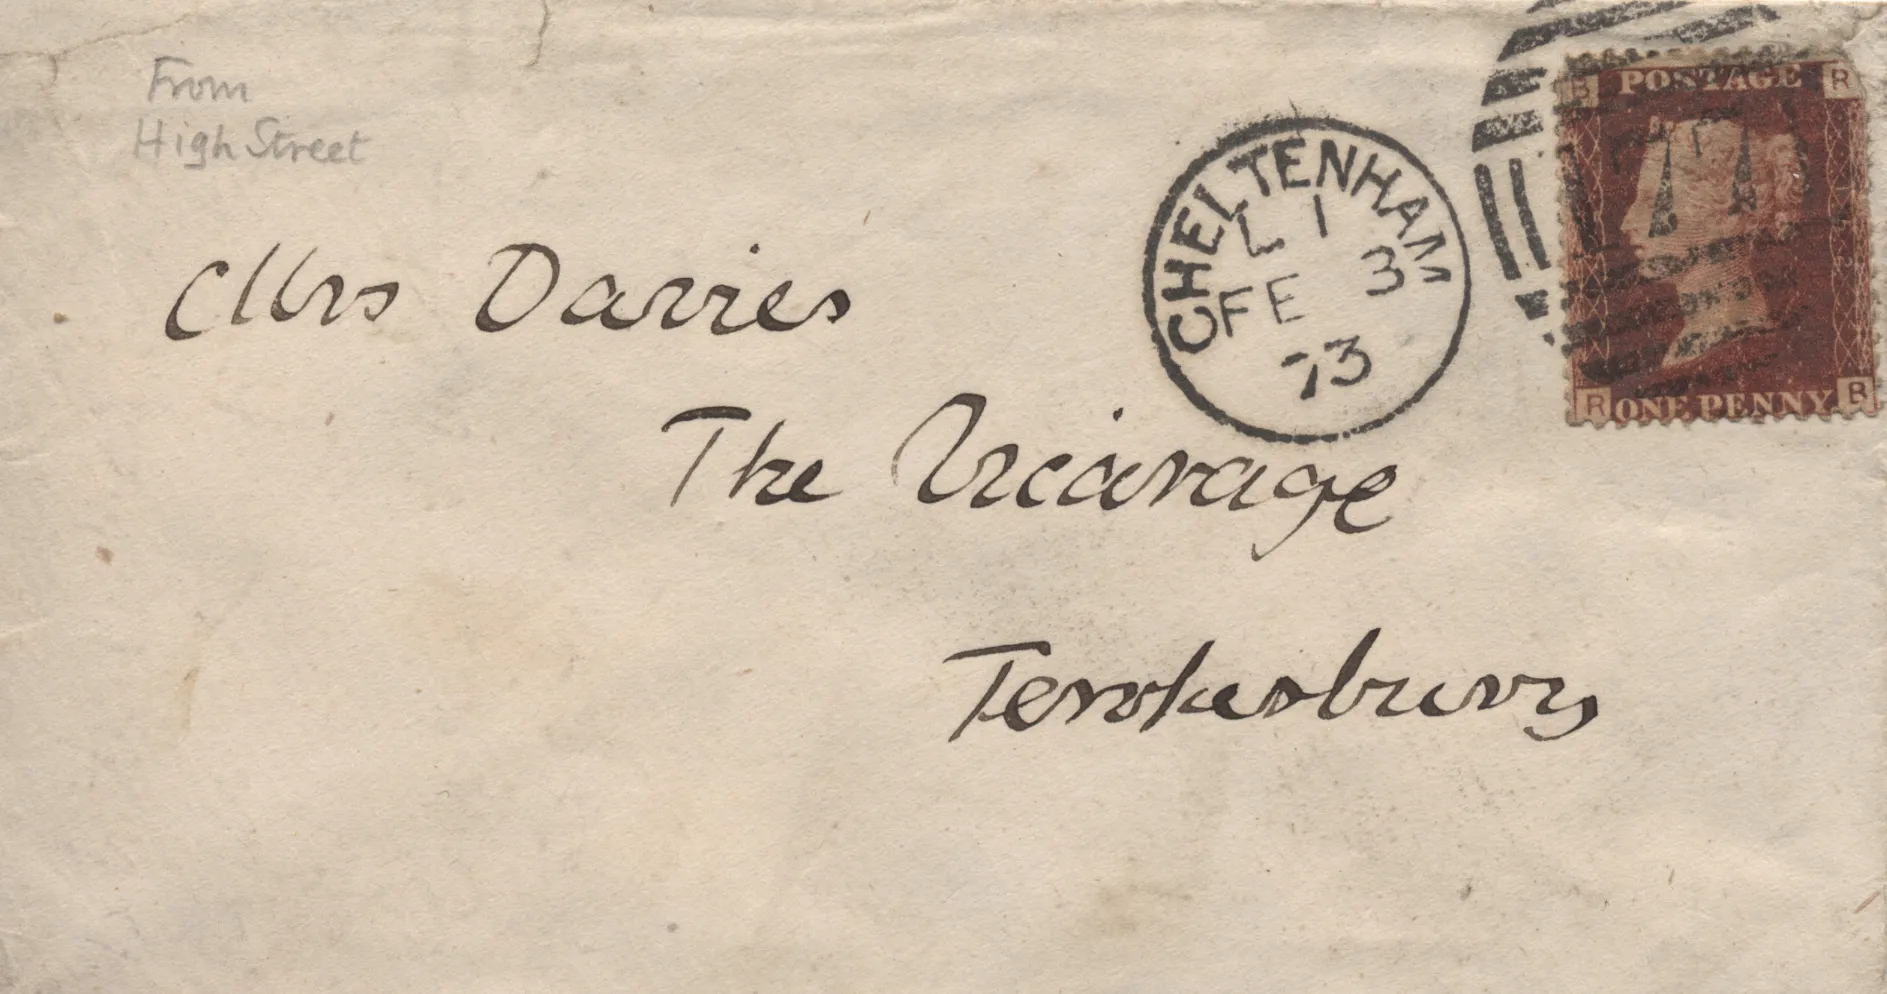 From
High Street
Mrs Davies
The Vicarage
Tewkesbury
CHELTENHAM
L 1
FE 3
73
B POSTAGE R
R ONE PENNY B